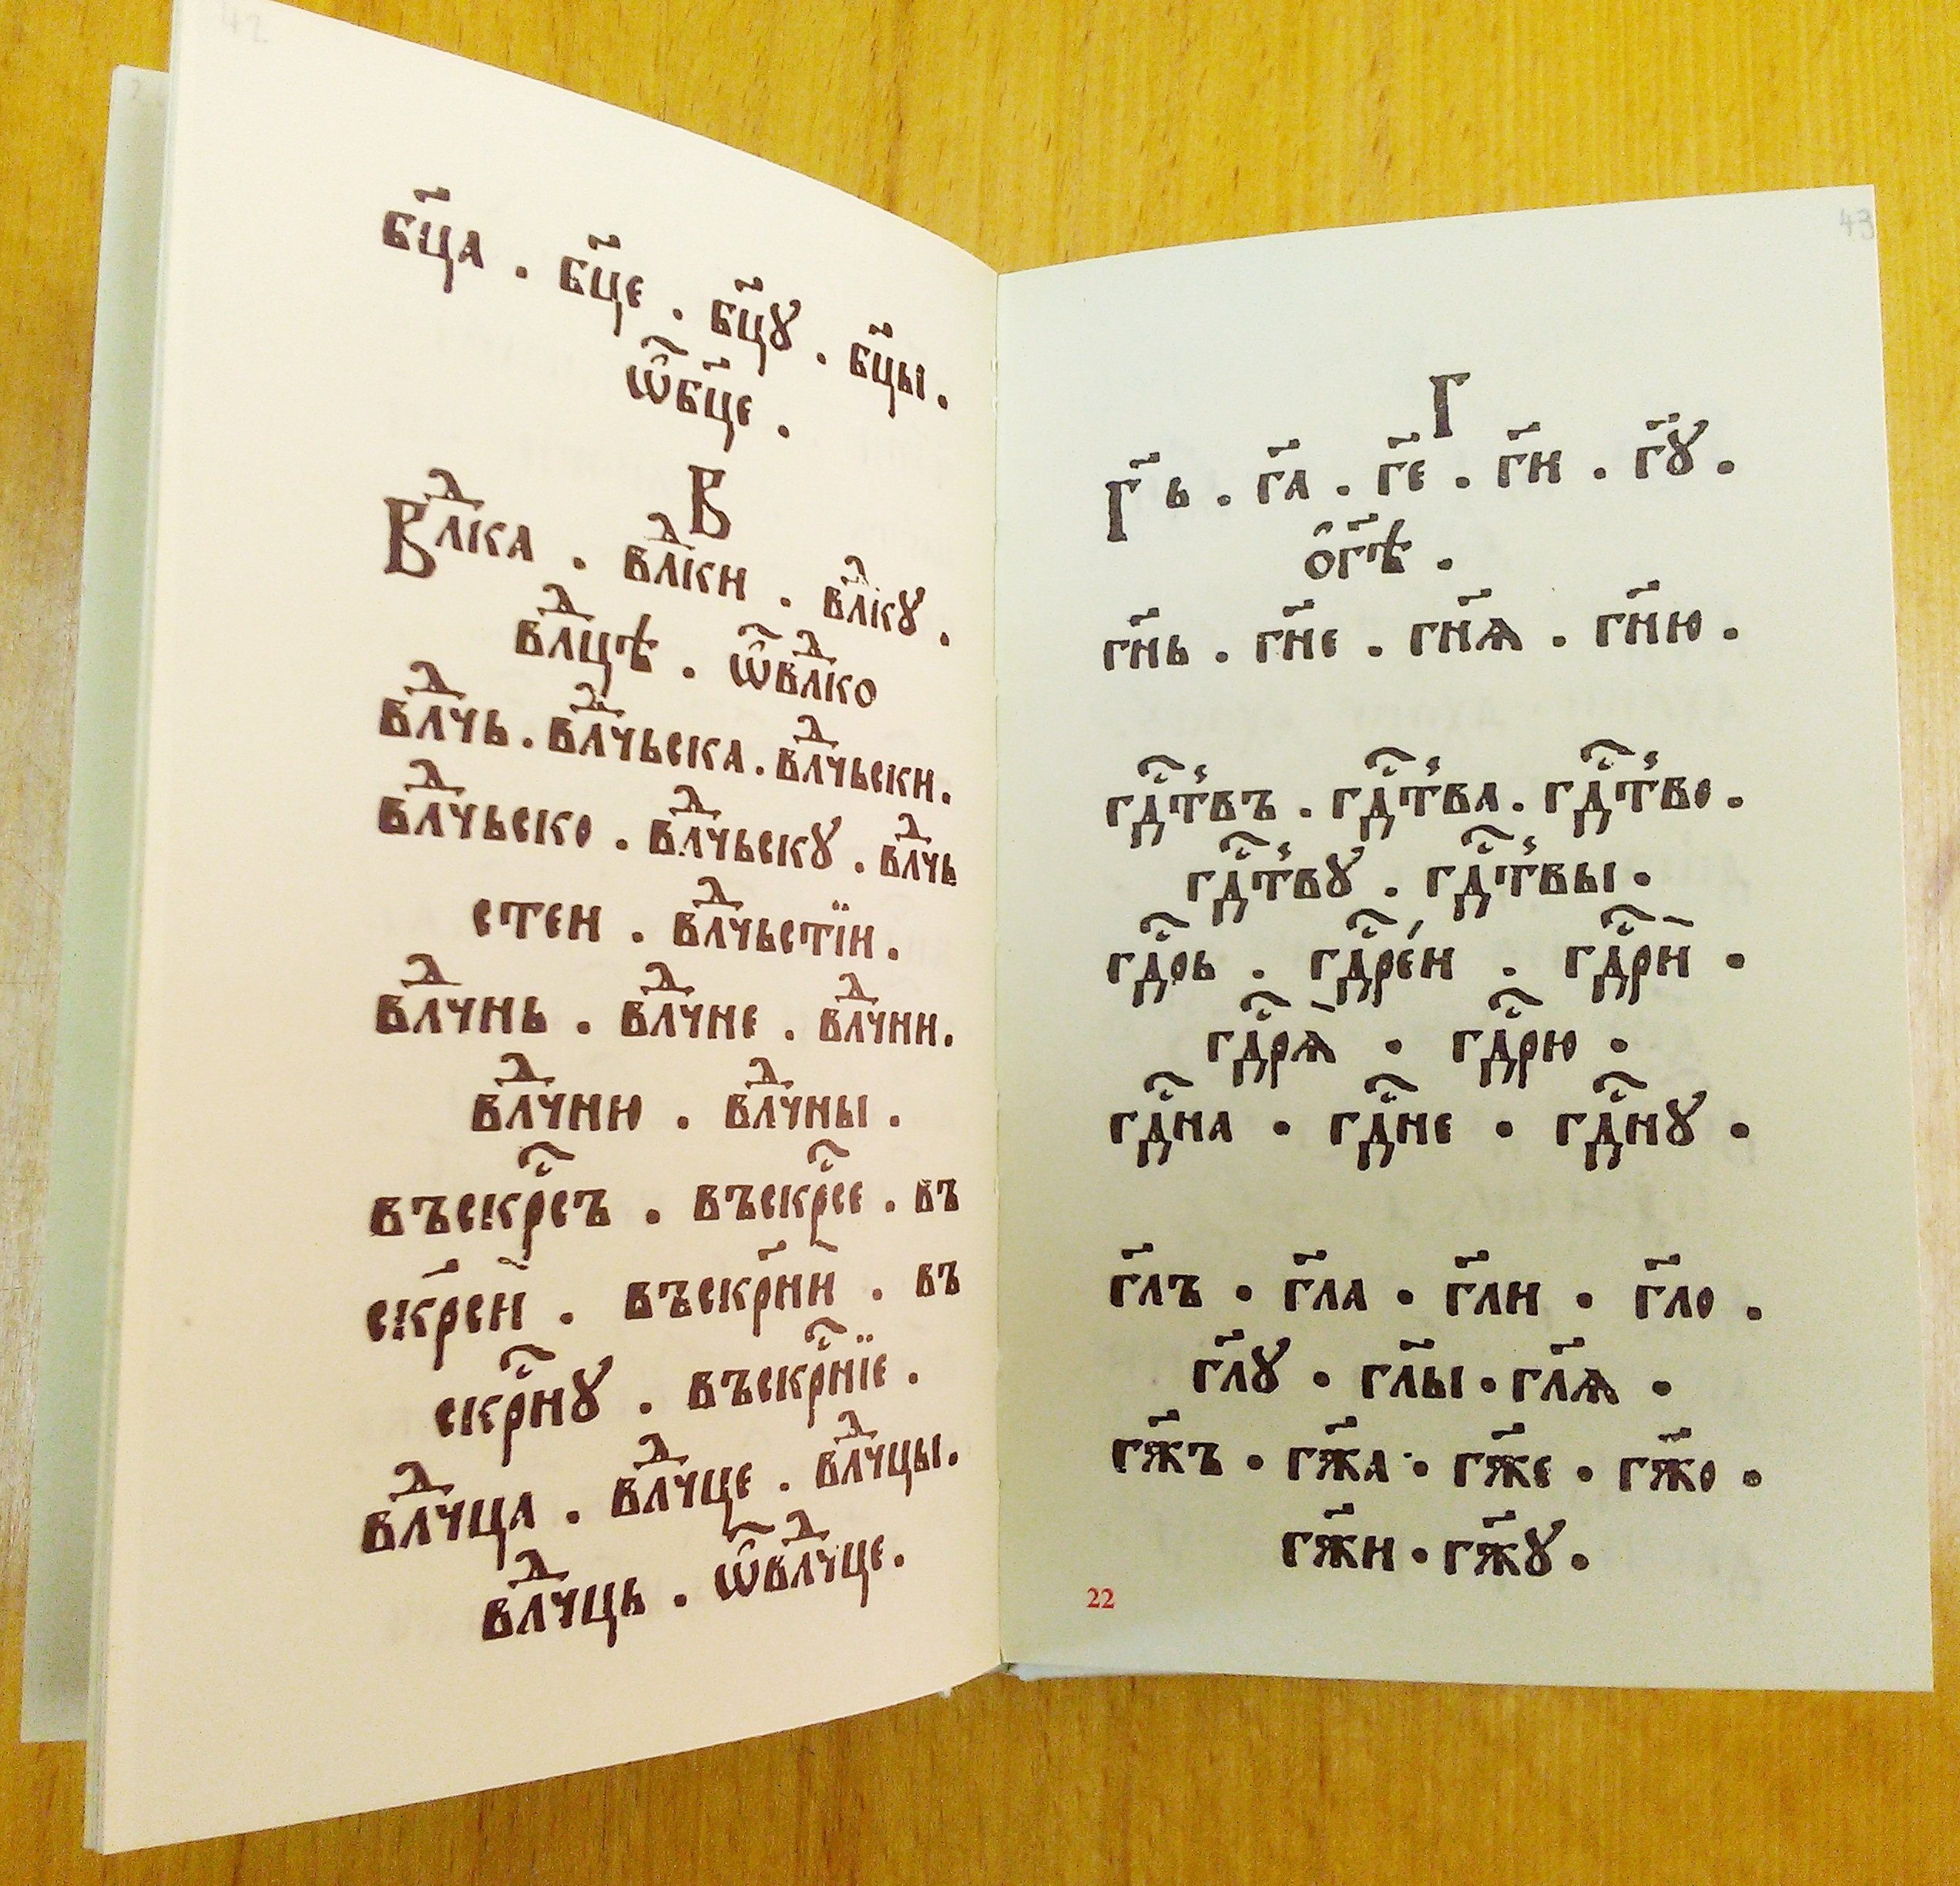 42
бц҃а . бц҃е . бц҃ꙋ . бц҃ы .
ѡ҃бц҃е .
В
Влⷣка . влⷣки . влⷣкꙋ .
влⷣцѣ . ѡ҃влⷣко
влⷣчь . влⷣчьска . влⷣчьски .
влⷣчьско . влⷣчьскꙋ . влⷣчь
стеи . влⷣчьстїи .
влⷣчнь . влⷣчне . влⷣчни .
влⷣчню . влⷣчны .
въскрⷭ҇съ . въскрⷭ҇се . въ
скр҃сен҃ . въскр҃нн҃ . въ
скрⷭ҇нꙋ . въскрⷭ҇нїе .
влⷣчца . влⷣчце . влⷣчцы .
влⷣчць . ѡ҃влⷣчце .
43
Г
Г҃ь . г҃а . г҃е . г҃и . г҃ꙋ .
о̑г҃ѣ .
гн҃ь . гн҃е . гн҃ѧ . гн҃ю .
гдⷭ҇тⷭвъ . гдⷭ҇тⷭва . гдⷭ҇тⷭво .
гдⷭ҇тⷭвꙋ . гдⷭ҇тⷭвы .
гдⷭ҇рь . гдⷭ҇ре́и . гдⷭ҇рӣ .
гдⷭ҇рѧ̄ . гдⷭ҇рю .
гдⷭ҇на . гдⷭ҇не . гдⷭ҇нꙋ .
гл҃ъ . гл҃а . гл҃и . гл҃о .
гл҃ꙋ . гл҃ы . гл҃ѧ .
гж҃ъ . гж҃а . гж҃е . гж҃о .
гж҃и . гж҃ꙋ .
22